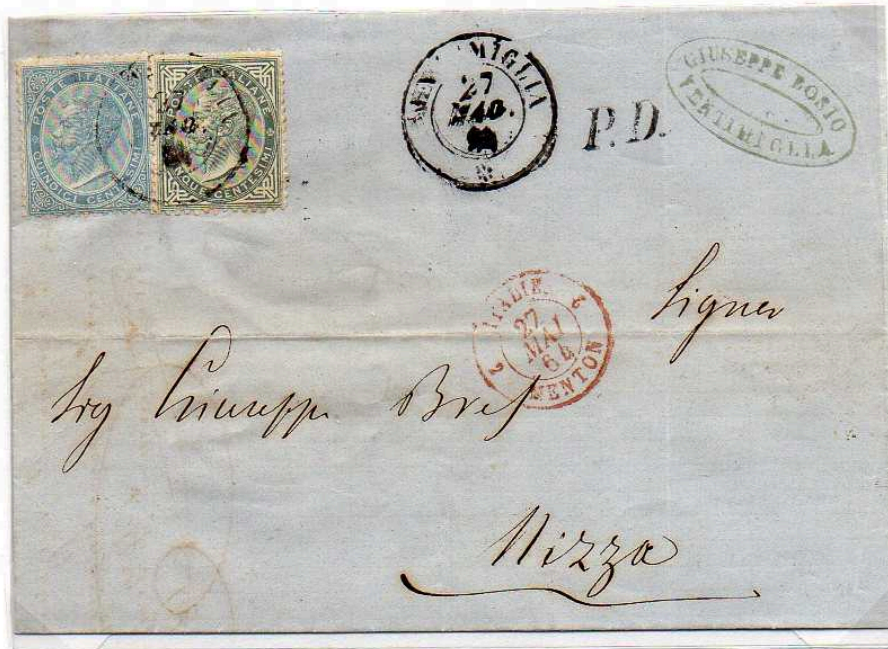 POSTE ITALIANE
QUINDICI CENTESIMI
POSTE ITALIANE
CENTESIMI
MIGLIA
27
MAG.
P.D.
GIUSEPPE BOSIO
VENTIMIGLIA
2 ITALIE. 2
27
MAI
64
MENTON
Signor
Sig Giuseppe
Nizza